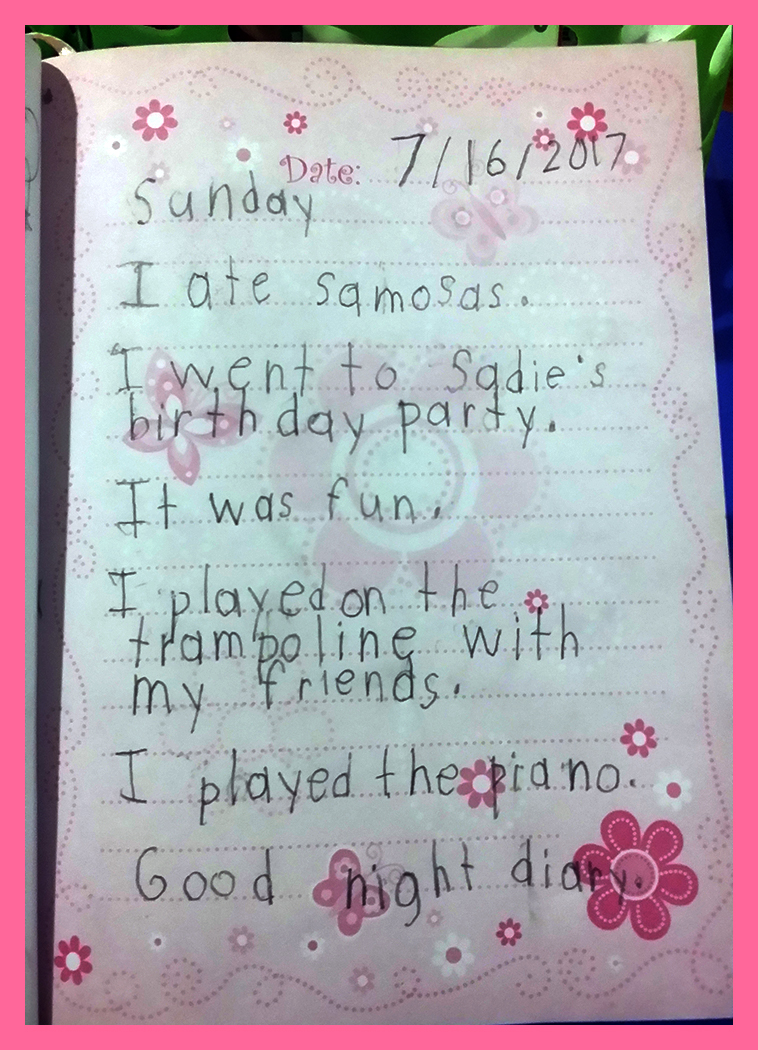 Date: 7/16/2017
Sunday
I ate samosas.
I went to Sadie's
birthday party.
It was fun.
I played on the
trampoline with
my friends.
I played the piano.
Good night diary.